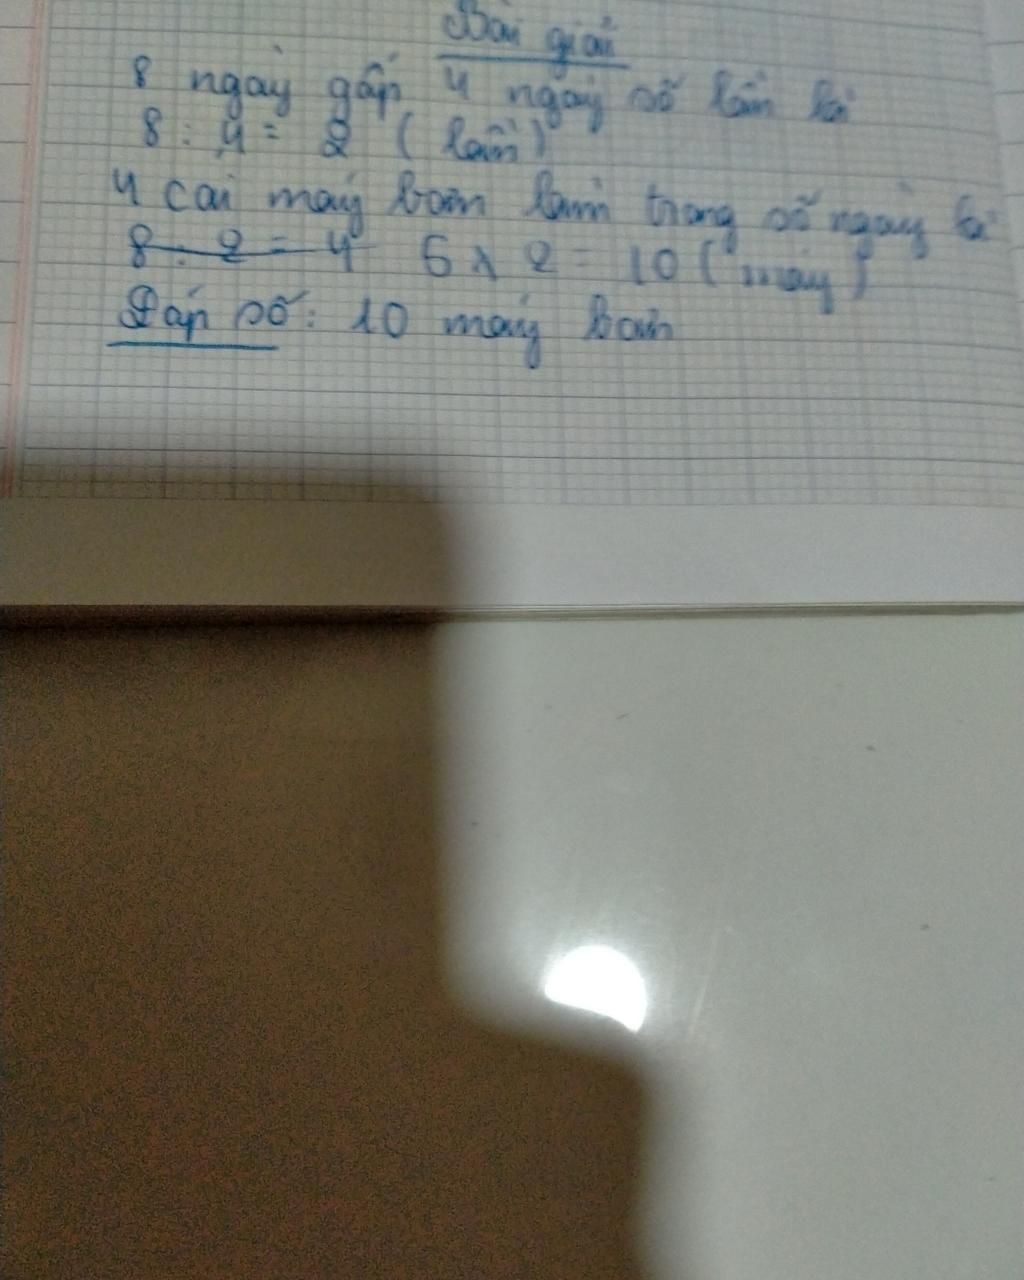 Bài giải
8 ngày gấp 4 ngày số lần là
8 : 4 = 2 ( lần )
4 cái máy bơm làm trong số ngày là
8 : 2 = 4 5 x 2 = 10 ( máy )
Đáp số : 10 máy bơm